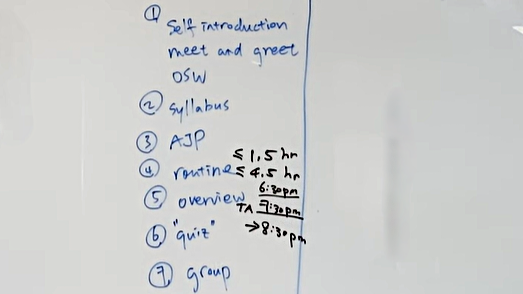 ① Self introduction
meet and greet
OSW
② syllabus
③ AJP
≤ 1.5 hr
④ routine ≤ 4.5 hr
6:30pm
⑤ overview
TA 7:30pm
⑥ "quiz" → 8:30pm
⑦ group